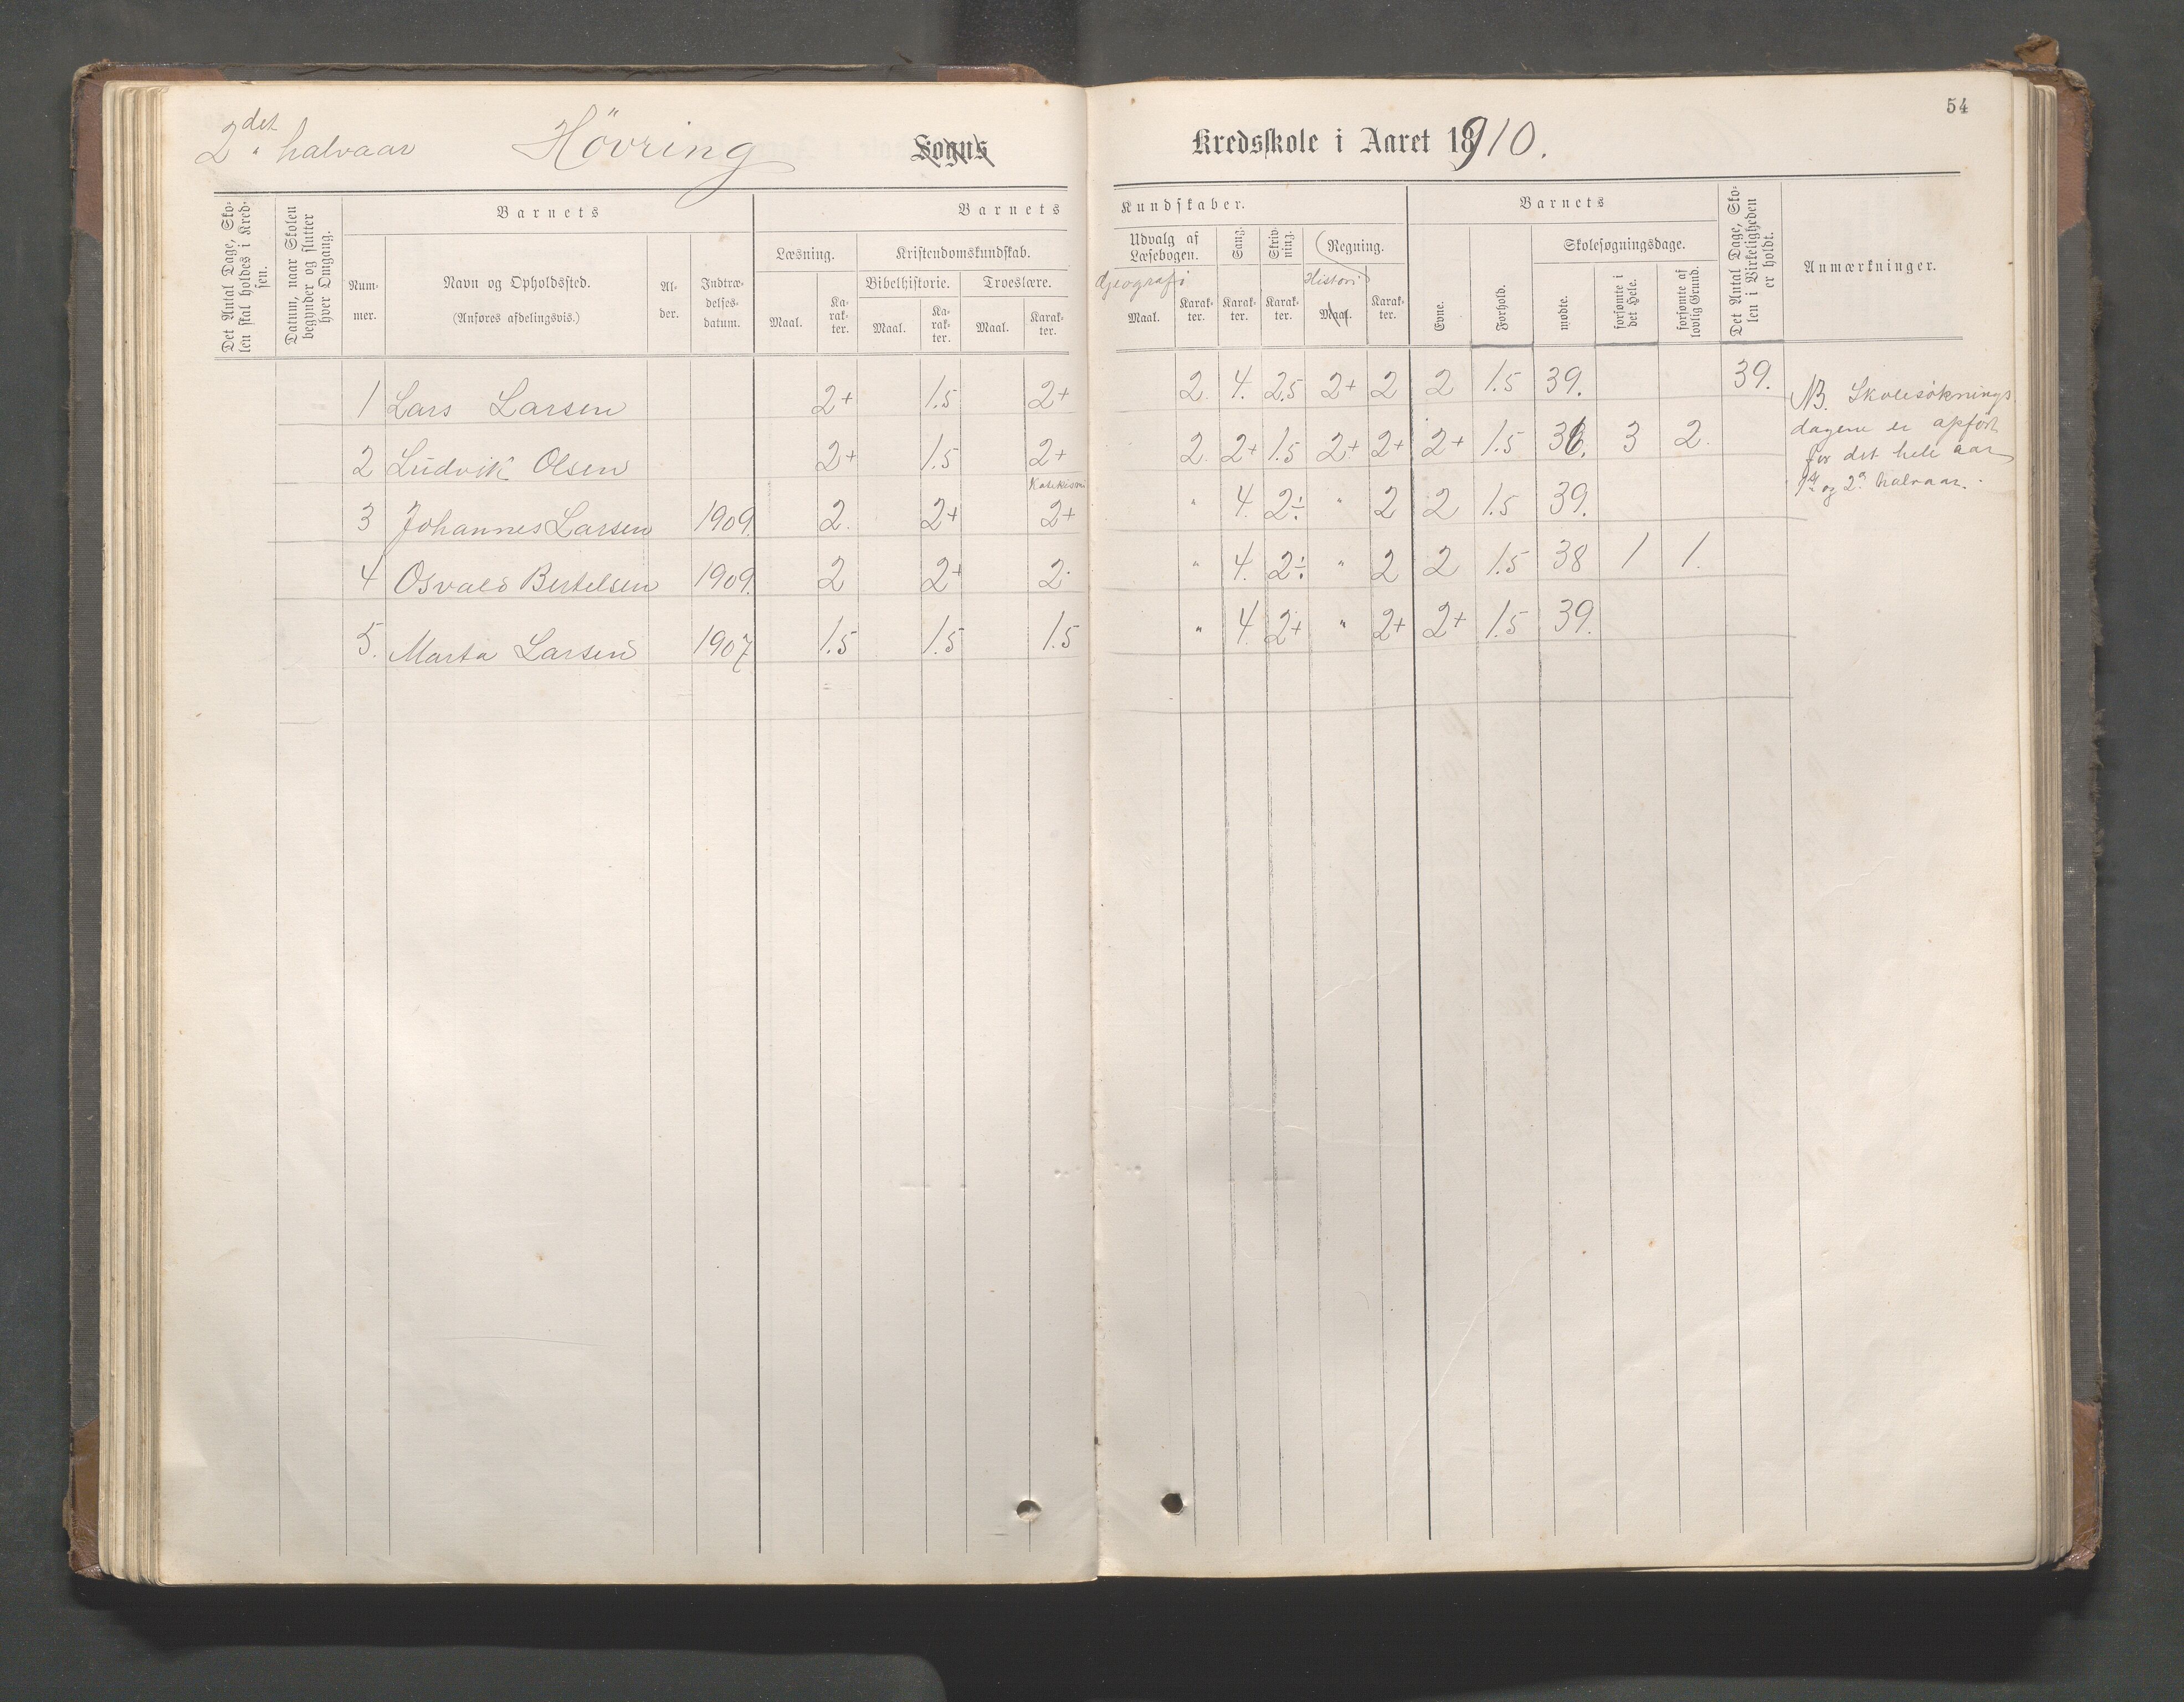 54
2det halvaar Hövring Sogns Kredsskole i Aaret 1910.
Det Antal Dage, Skolen skal holdes i Kredsen.
Datum, naar Skolen begynder og slutter hver Omgang.
Barnets
Num-
mer.
Navn og Opholdssted.
(Anføres afdelingsvis.)
Al-
der.
Indtræ-
delses-
datum.
Barnets
Læsning.
Maal.
Ka-
rak-
ter.
Kristendomskundskab.
Bibelhistorie.
Maal.
Ka-
rak-
ter.
Troeslære.
Maal.
Karak-
ter.
Kundskaber.
Udvalg af
Læsebogen.
Geografi
Maal.
Karak-
ter.
Sang.
Karak-
ter.
Skriv-
ning.
Karak-
ter.
Regning.
Histori
Maal.
Karak-
ter.
Barnets
Evne.
Forhold.
Skolesøgningsdage.
mødte.
forsømte i
det Hele.
forsømte af
lovlig Grund.
Det Antal Dage, Sko-
len i Virkeligheden
er holdt.
Anmærkninger.
1 Lars Larsen 2+ 1.5 2+ 2. 4. 2.5 2+ 2 2 1.5 39. 39.
2 Ludvik Olsen 2+ 1.5 2+ 2. 2+ 1.5 2+ 2+ 2+ 1.5 36. 3 2.
3 Johannes Larsen 1909. 2. 2+ 2+ " 4. 2÷ " 2 2 1.5 39.
4 Osvald Bertelsen 1909. 2 2+ 2. " 4. 2÷ " 2 2 1.5 38 1 1.
5. Marta Larsen 1907 1.5 1.5 1.5 " 4. 2+ " 2+ 2+ 1.5 39.
NB. Skolesöknings
dagene er opført
for det hele aar
1ste og 2det halvaar.